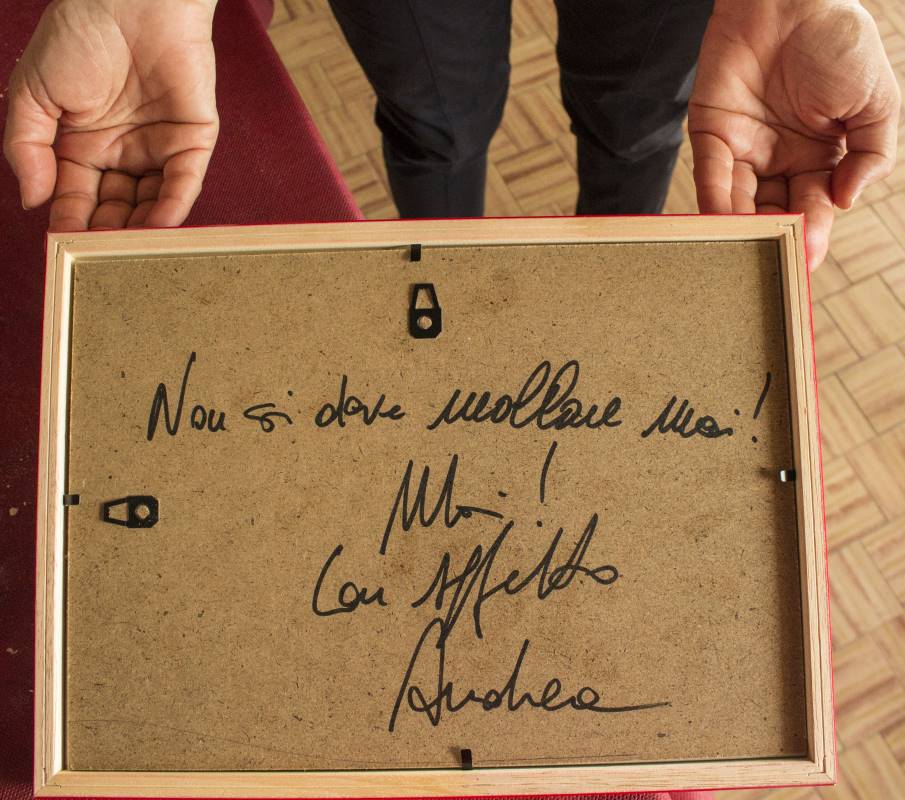 Non si deve mollare mai!
Mai!
Con Affetto
Andrea